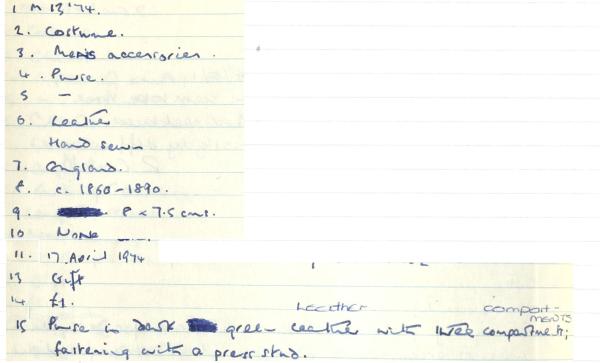 1 M 13'74.
2. Costume.
3. Mens accessories.
4. Purse.
5 —
6. Leather
Hand sewn
7. England.
8. c. 1860-1890.
9. 8 x 7.5 cms.
10 None
11. 17 April 1974
13 Gift
14 £1.
LEATHER COMPART-
MENTS
15 Purse in dark green leather with three compartments;
fastening with a press stud.